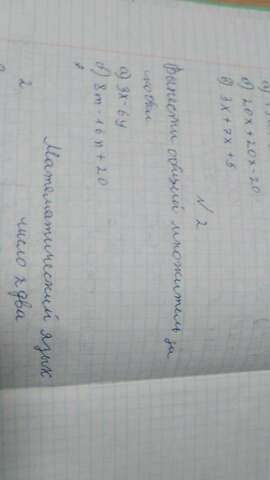 б) 20x+20x-20
в) 3x+7x+8
№2
Вынести общий множитель за
скобки
а) 3x-6y
б) 8m-16n+20
Математический язык
2 число два